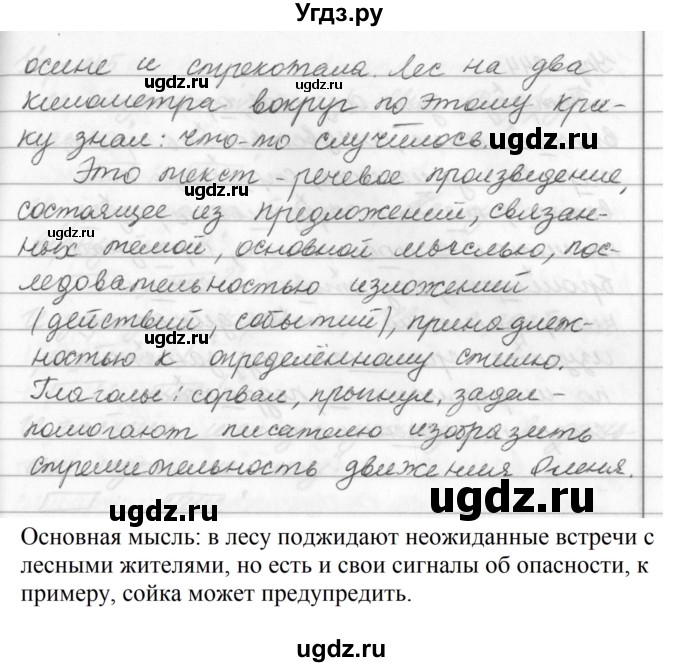 Угдз.ру
осине и стрекотала. Лес на два
километра вокруг по этому кри-
ку знал: что-то случилось.
Это текст - речевое произведение,
состоящее из предложений, связан-
ных темой, основной мыслью, пос-
ледовательностью изложений
(действий, событий), принадлеж-
ностью к определённому стилю.
Глаголы: сорвал, прыгнул, задел -
помогают писателю изобразить
стремительность движения Оленя.
Основная мысль: в лесу поджидают неожиданные встречи с
лесными жителями, но есть и свои сигналы об опасности, к
примеру, сойка может предупредить.
ugdz.ru
ugdz.ru
ugdz.ru
ugdz.ru
ugdz.ru
ugdz.ru
ugdz.ru
ugdz.ru
ugdz.ru
ugdz.ru
ugdz.ru